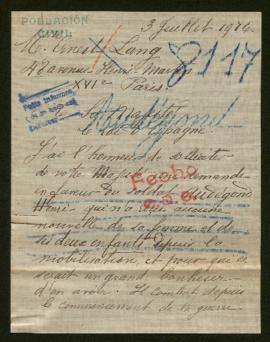 POBLACIÓN
CIVIL
3 Juillet 1916
M. Ernest Lang
48 avenue Henri Martin
XVIe Paris
2117
Sa Majesté
le Roi d'Espagne
J'ai l'honneur de solliciter
de votre Majesté une demande
en faveur du soldat
Henri qui n'a reçu aucune
nouvelle de sa femme et de
ses deux enfants depuis la
mobilisation et pour qui ce
serait un grand bonheur
d'en avoir. Il combat depuis
le commencement de la guerre
Fecho